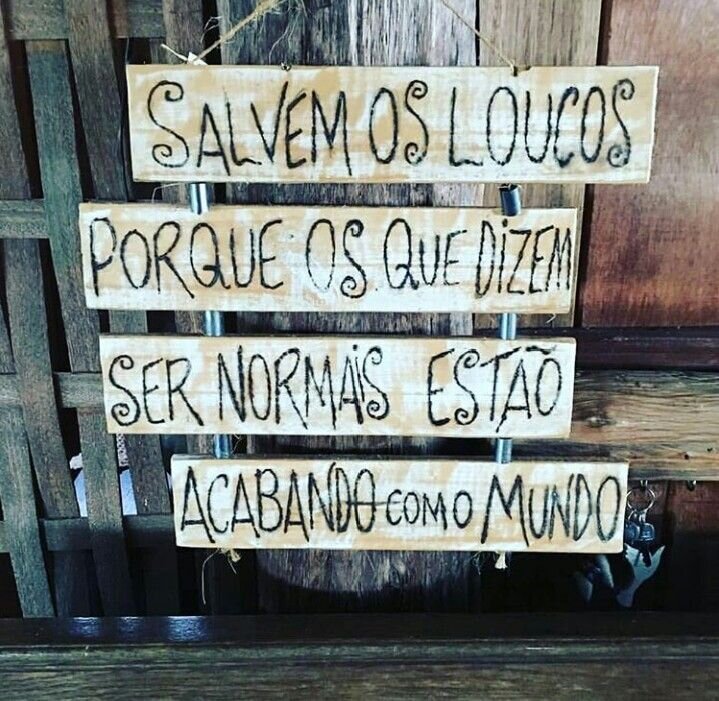 SALVEM OS LOUCOS
PORQUE OS QUE DIZEM
SER NORMAIS ESTÃO
ACABANDO COM O MUNDO